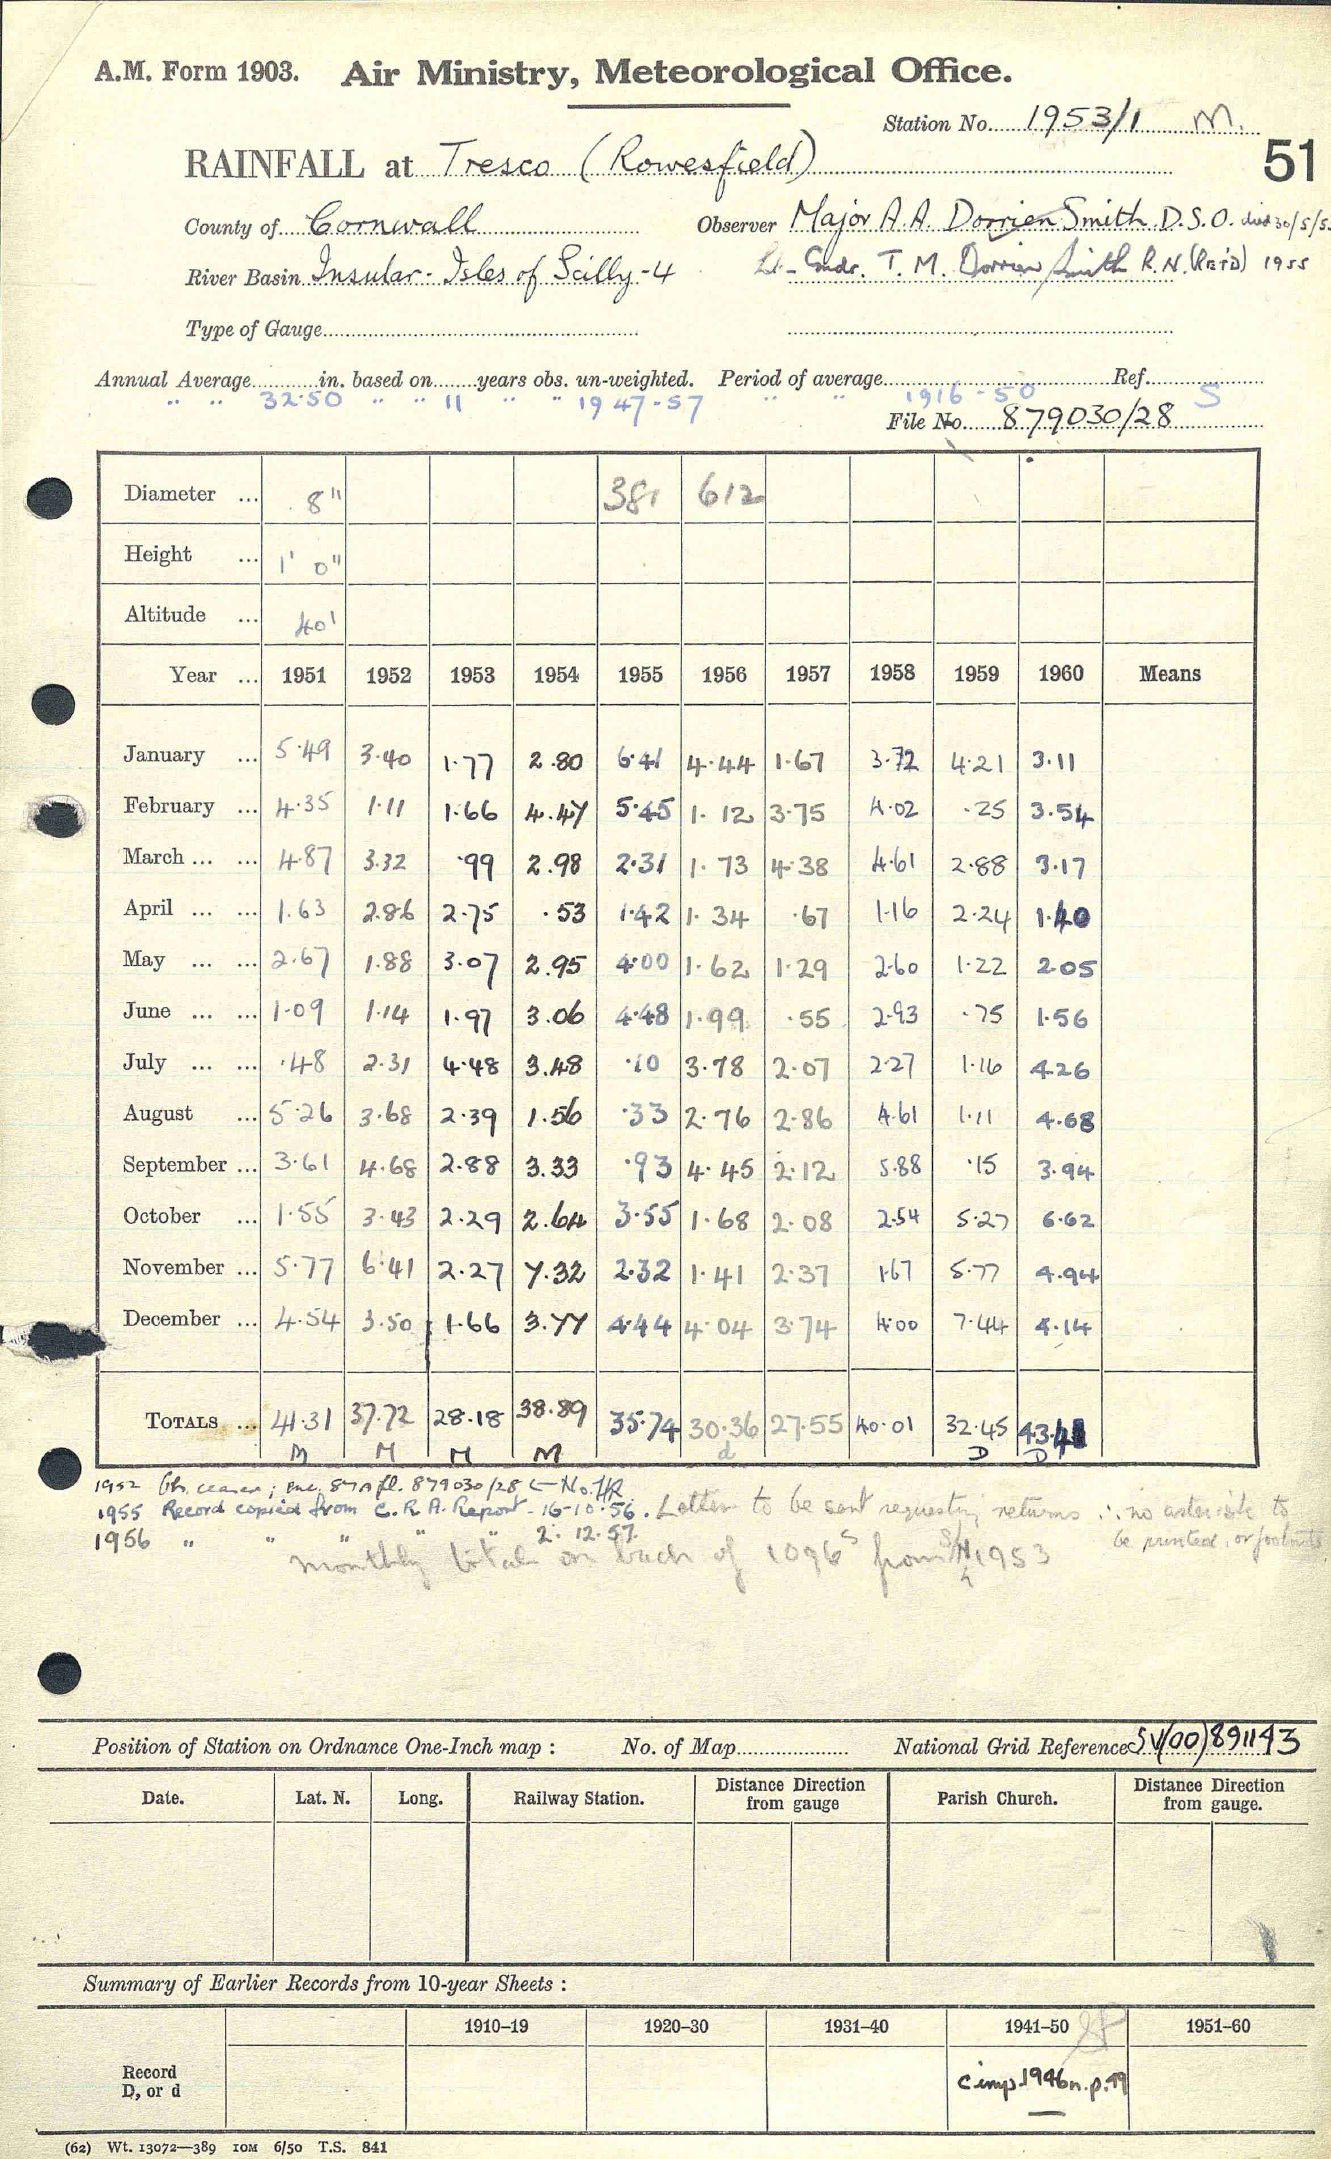 A.M. Form 1903. Air Ministry, Meteorological Office.
Station No. 1953/1 M.
51
RAINFALL at Tresco (Rowesfield)
County of Cornwall Observer Major A.A. Dorrien Smith D.S.O. died 30/5/5
River Basin Insular - Isles of Scilly - 4 Lt-Cmdr. T. M. Dorrien Smith R.N. (Ret'd) 1955
Type of Gauge
Annual Average in. based on years obs. un-weighted. Period of average Ref.
" " 32·50 " " 11 " " 1947-57 " " 1916-50 S
File No. 879030/28
Diameter ... 8" 381 612
Height ... 1' 0"
Altitude ... 40'
Year ... 1951 1952 1953 1954 1955 1956 1957 1958 1959 1960 Means
January ... 5·49 3·40 1·77 2·80 6·41 4·44 1·67 3·72 4·21 3·11
February ... 4·35 1·11 1·66 4·47 5·45 1·12 3·75 4·02 ·25 3·54
March ... ... 4·87 3·32 ·99 2·98 2·31 1·73 4·38 4·61 2·88 3·17
April ... ... 1·63 2·86 2·75 ·53 1·42 1·34 ·67 1·16 2·24 1·40
May ... ... 2·67 1·88 3·07 2·95 4·00 1·62 1·29 2·60 1·22 2·05
June ... ... 1·09 1·14 1·97 3·06 4·48 1·99 ·55 2·93 ·75 1·56
July ... ... ·48 2·31 4·48 3·48 ·10 3·78 2·07 2·27 1·16 4·26
August ... 5·26 3·68 2·39 1·56 ·33 2·76 2·86 4·61 1·11 4·68
September ... 3·61 4·68 2·88 3·33 ·93 4·45 2·12 5·88 ·15 3·94
October ... 1·55 3·43 2·29 2·64 3·55 1·68 2·08 2·54 5·27 6·62
November ... 5·77 6·41 2·27 7·32 2·32 1·41 2·37 1·67 5·77 4·94
December ... 4·54 3·50 1·66 3·77 4·44 4·04 3·74 4·00 7·44 4·14
TOTALS ... 41·31 37·72 28·18 38·89 35·74 30·36 27·55 40·01 32·45 43·41
M M M M d D D
1952 879030/28 ← No. HR
1955 Record copied from C.R.A. Report - 16-10-56. Letter to be sent requesting returns ∴ no asterisk to
1956 " " " " " 2·12·57. be printed, or footnote
monthly total on back of 1096s from 1953
Position of Station on Ordnance One-Inch map : No. of Map National Grid Reference SV(00)891143
Date. Lat. N. Long. Railway Station. Distance Direction from gauge Parish Church. Distance Direction from gauge.
Summary of Earlier Records from 10-year Sheets :
1910–19 1920–30 1931–40 1941–50 1951–60
Record
D, or d
1946
(62) Wt. 13072—389 10M 6/50 T.S. 841